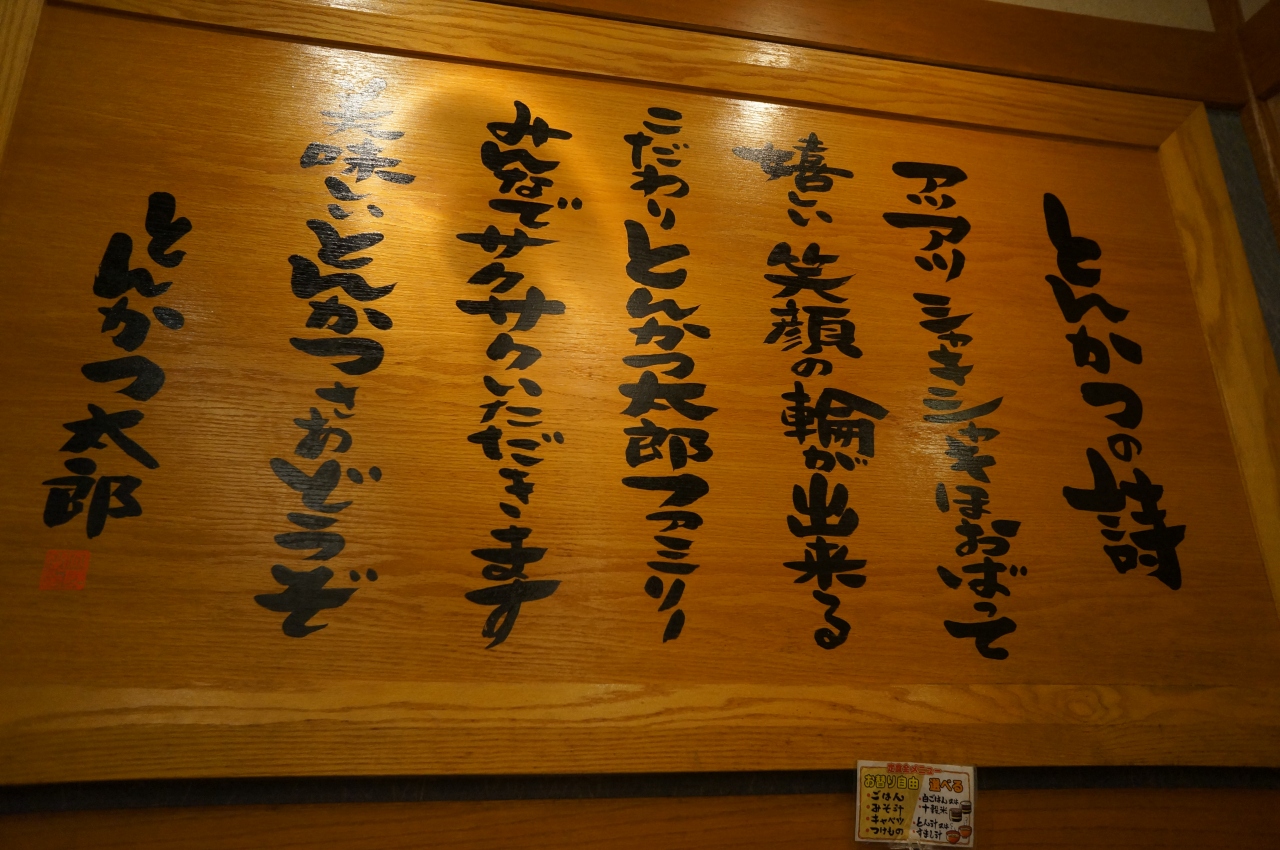 とんかつの詩
アツアツシャキシャキほおばって
嬉しい笑顔の輪が出来る
こだわりとんかつ太郎ファミリー
みんなでサクサクいただきます
美味しいとんかつさあどうぞ
とんかつ太郎
お替り自由
・ごはん
・みそ汁
・キャベツ
・つけもの
選べる
・白ごはん又は
・十穀米
・とん汁又は
・すまし汁